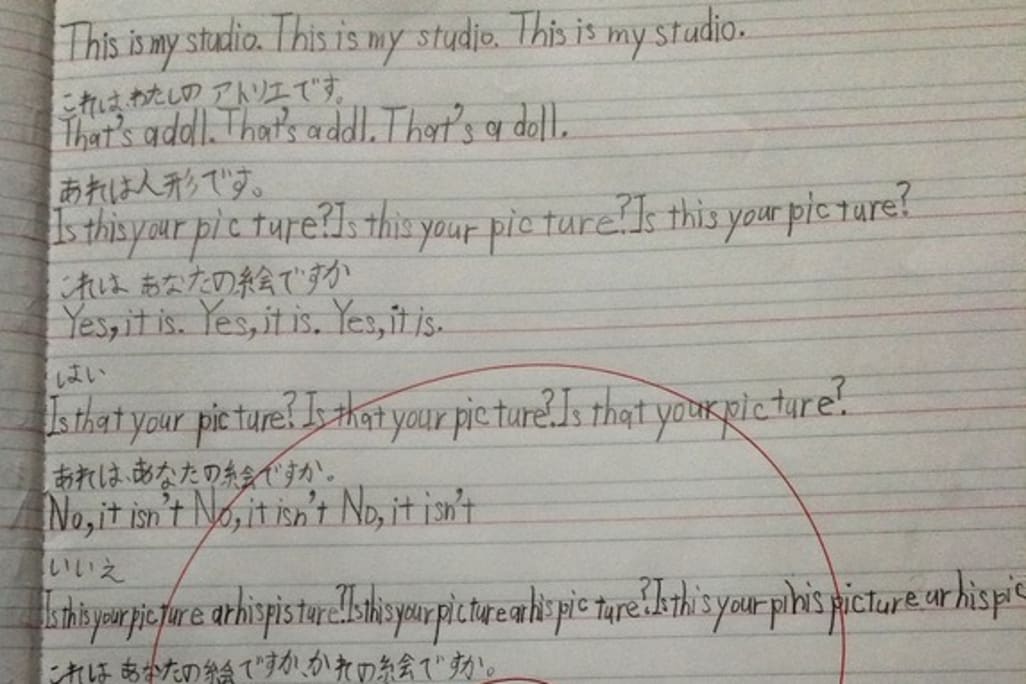 This is my studio. This is my studio. This is my studio.
これは、わたしの アトリエです。
That's a doll. That's a doll. That's a doll.
あれは人形です。
Is this your pic ture? Is this your pic ture? Is this your pic ture?
これは あなたの絵ですか
Yes, it is. Yes, it is. Yes, it is.
はい
Is that your pic ture? Is that your pic ture? Is that your pic ture?
あれは、あなたの絵ですか。
No, it isn't No, it isn't No, it isn't
いいえ
Is this your pic ture ar his pis ture? Is this your pic ture ar his pic ture? Is this your pihis picture ur his pic
これは あなたの絵ですか、かれの絵ですか。